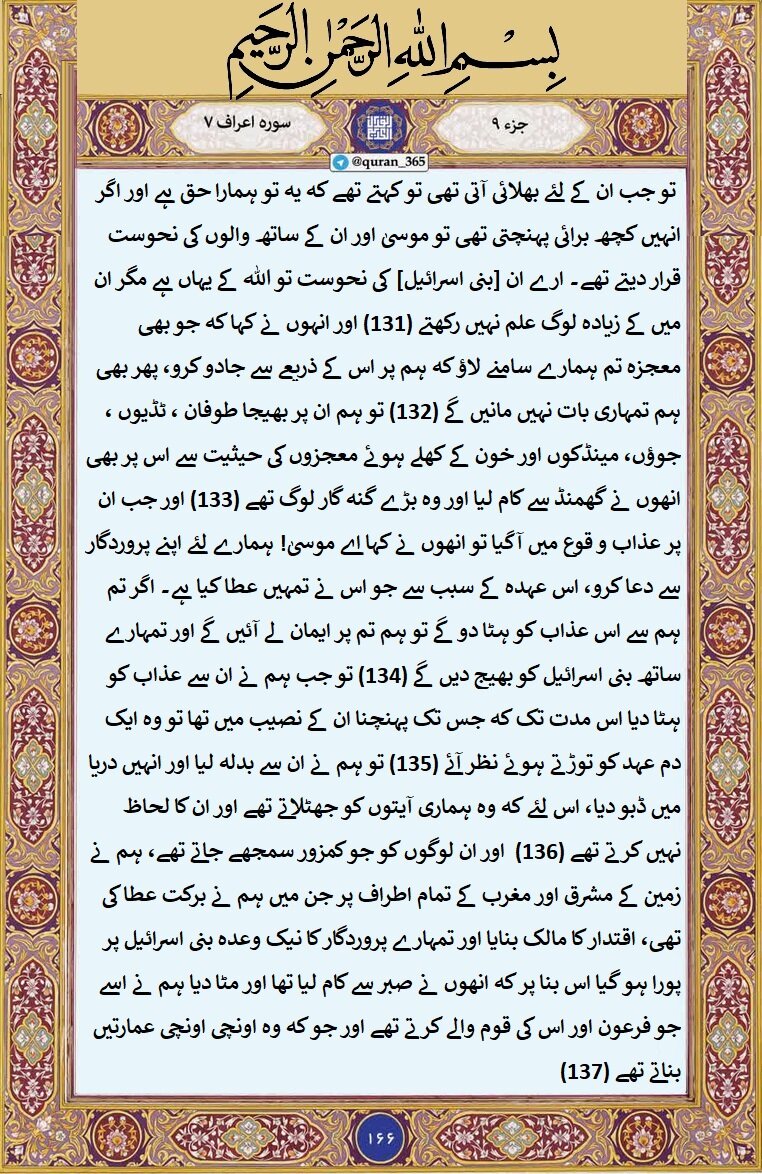 بِسْمِ اللهِ الرَّحْمٰنِ الرَّحِيمِ
جزء ۹
سوره اعراف ۷
@quran_365
تو جب ان کے لئے بھلائی آتی تھی تو کہتے تھے که یه تو ہمارا حق ہے اور اگر
انہیں کچھ برائی پہنچتی تھی تو موسیٰ اور ان کے ساتھ والوں کی نحوست
قرار دیتے تھے۔ ارے ان [بنی اسرائیل] کی نحوست تو الله کے یہاں ہے مگر ان
میں کے زیاده لوگ علم نہیں رکھتے (131) اور انہوں نے کہا که جو بھی
معجزه تم ہمارے سامنے لاؤ که ہم پر اس کے ذریعے سے جادو کرو، پھر بھی
ہم تمہاری بات نہیں مانیں گے (132) تو ہم ان پر بھیجا طوفان ، ٹڈیوں ،
جوؤں، مینڈکوں اور خون کے کھلے ہوئے معجزوں کی حیثیت سے اس پر بھی
انھوں نے گھمنڈ سے کام لیا اور وه بڑے گنه گار لوگ تھے (133) اور جب ان
پر عذاب و قوع میں آگیا تو انھوں نے کہا اے موسیٰ! ہمارے لئے اپنے پروردگار
سے دعا کرو، اس عہده کے سبب سے جو اس نے تمہیں عطا کیا ہے۔ اگر تم
ہم سے اس عذاب کو ہٹا دو گے تو ہم تم پر ایمان لے آئیں گے اور تمہارے
ساتھ بنی اسرائیل کو بھیج دیں گے (134) تو جب ہم نے ان سے عذاب کو
ہٹا دیا اس مدت تک که جس تک پہنچنا ان کے نصیب میں تھا تو وه ایک
دم عہد کو توڑتے ہوئے نظر آئے (135) تو ہم نے ان سے بدله لیا اور انہیں دریا
میں ڈبو دیا، اس لئے که وه ہماری آیتوں کو جھٹلاتے تھے اور ان کا لحاظ
نہیں کرتے تھے (136) اور ان لوگوں کو جو کمزور سمجھے جاتے تھے، ہم نے
زمین کے مشرق اور مغرب کے تمام اطراف پر جن میں ہم نے برکت عطا کی
تھی، اقتدار کا مالک بنایا اور تمہارے پروردگار کا نیک وعده بنی اسرائیل پر
پورا ہو گیا اس بنا پر که انھوں نے صبر سے کام لیا تھا اور مٹا دیا ہم نے اسے
جو فرعون اور اس کی قوم والے کرتے تھے اور جو که وه اونچی اونچی عمارتیں
بناتے تھے (137)
۱۶۶